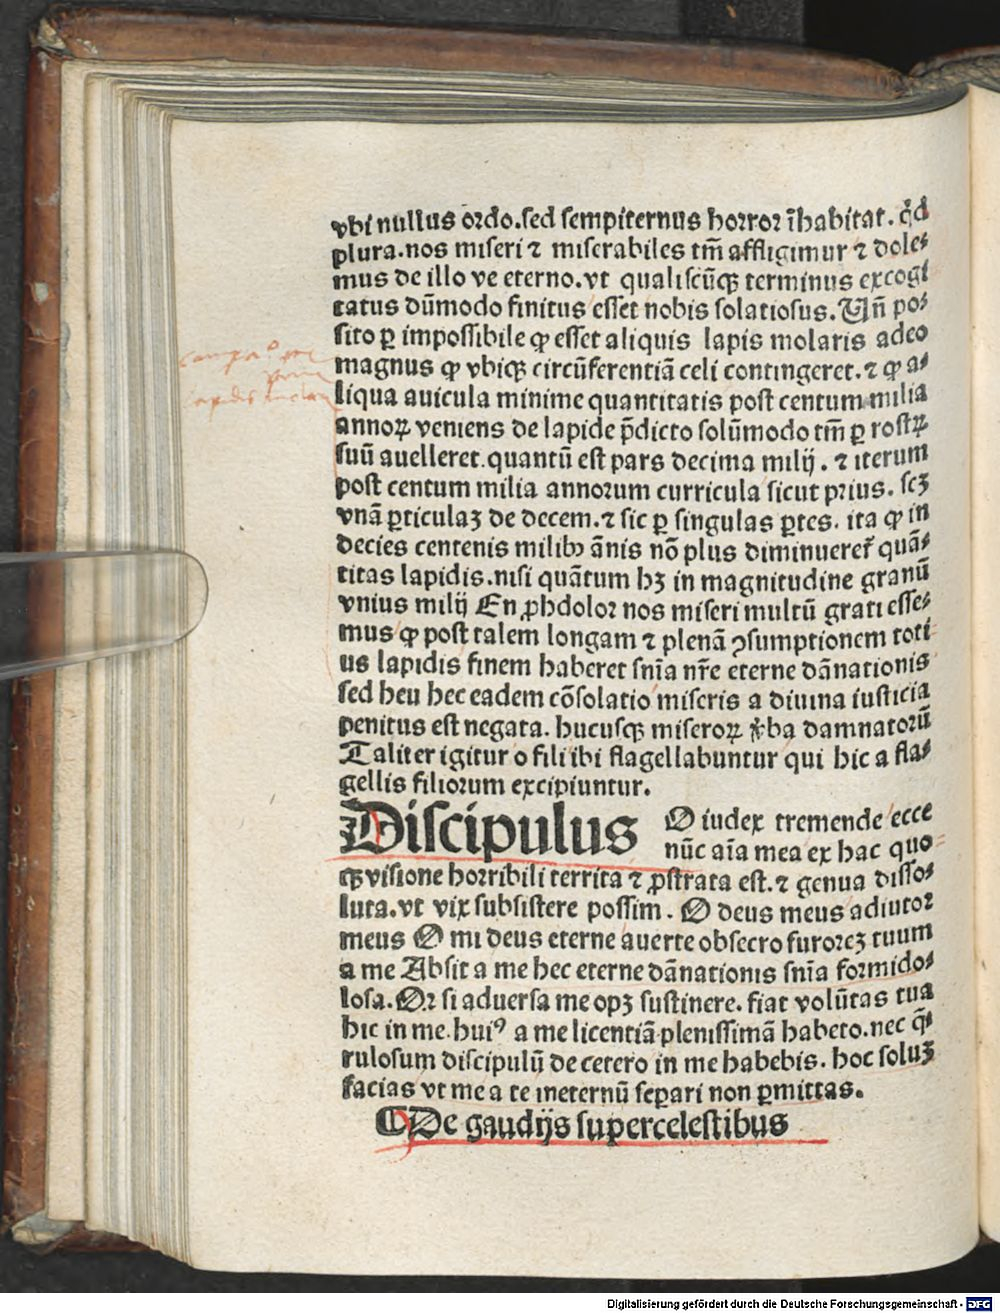 vbi nullus ordo.sed sempiternus horror īhabitat. qͥd
plura.nos miseri ⁊ miserabiles tm̄ affligimur ⁊ dole⸗
mus de illo ve eterno.vt qualiscūqꝫ terminus excogi
tatus dūmodo finitus esset nobis solatiosus. Vn̄ po⸗
sito ꝑ impossibile ꝙ esset aliquis lapis molaris adeo
magnus ꝙ vbiqꝫ circūferentiā celi contingeret.⁊ ꝙ a⸗
liqua auicula minime quantitatis post centum milia
annoꝝ veniens de lapide p̄dicto solūmodo tm̄ ꝑ rostꝝ
suū auelleret.quantū est pars decima milij. ⁊ iterum
post centum milia annorum curricula sicut prius. scꝫ
vnā ꝑticulaꝫ de decem.⁊ sic ꝑ singulas ꝑtes. ita ꝙ in
decies centenis milibꝫ ānis nō plus diminueret̄ quā⸗
titas lapidis.nisi quātum hꝫ in magnitudine granū
vnius milij En ꝓhdolor nos miseri multū grati esse⸗
mus ꝙ post talem longam ⁊ plenā ꝯsumptionem toti
us lapidis finem haberet sn̄ia nr̄e eterne dānationis
sed heu hec eadem cōsolatio miseris a diuina iusticia
penitus est negata. hucusqꝫ miseroꝝ v̄ba damnatorū
Taliter igitur o fili ibi flagellabuntur qui hic a fla⸗
gellis filiorum excipiuntur.
Discipulus O iudex tremende ecce
nūc aīa mea ex hac quo
qꝫ visione horribili territa ⁊ ꝓstrata est.⁊ genua disso⸗
luta.vt vix subsistere possim. O deus meus adiutor
meus O mi deus eterne auerte obsecro furoreꝫ tuum
a me Absit a me hec eterne dānationis sn̄ia formido⸗
losa. Or si aduersa me opꝫ sustinere. fiat volūtas tua
hic in me.huiꝰ a me licentiā plenissimā habeto.nec q̄⸗
rulosum discipulū de cetero in me habebis. hoc soluꝫ
facias vt me a te ineternū seꝑari non ꝑmittas.
¶ De gaudijs supercelestibus
Digitalisierung gefördert durch die Deutsche Forschungsgemeinschaft - DFG